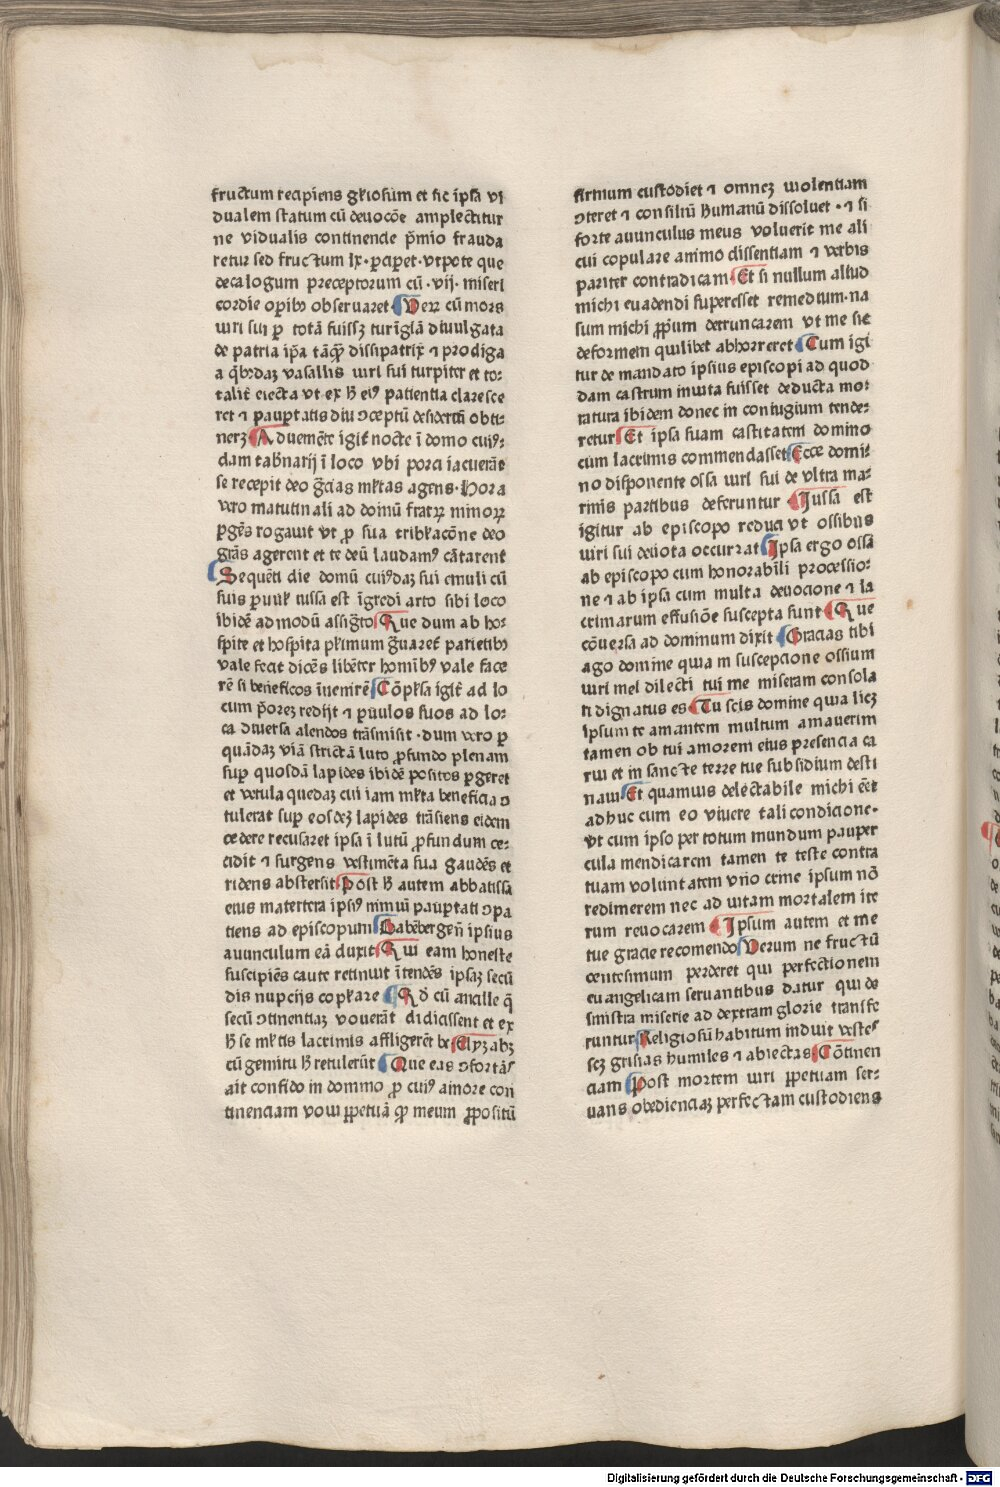 fructum recipiens gl̃iosum et sic ipsa vi
dualem statum cũ deuocõe amplectitur
ne vidualis continencie p̃mio frauda
retur sed fructum lx. ꝑciperet. vtpote que
decalogum preceptorum cũ. vij. miseri
cordie oꝑibꝫ obseruaret Veꝝ cũ mors
viri sui ꝑ totã fuissꝫ turĩgiã diuulgata
de patria ip̃a tãꝙ̃ dissipatrix ⁊ prodiga
a q̃bꝰdaꝫ vasallis viri sui turpiter et to⸗
talit̃ eiecta vt ex h̃ eiꝰ patientia claresce
ret ⁊ pauꝑtatis diu ꝯceptũ desideriũ obti⸗
neꝝ Aduemẽte igit̃ nocte ĩ domo cuiꝰ⸗
dam tab̃narij ĩ loco vbi porci iacuerãt
se recepit deo gr̃cias ml̃tas agens. Hora
vero matutinali ad domũ fratꝝ minoꝝ
ꝑgẽs rogauit vt ꝓ sua tribl̃acõne deo
gr̃as agerent et te deũ laudamꝰ cãtarent
Sequẽti die domũ cuiꝰdaꝫ sui emuli cũ
suis ꝑuul̃ iussa est ĩgredi arto sibi loco
ibidẽ admodũ assig̃to Que dum ab ho⸗
spite et hospita pl̃imum g̃uaret̃ parietibꝰ
vale fecit dicẽs libẽter homĩbꝰ vale face
rẽ si beneficos ĩuenirẽ Cõpl̃sa igit̃ ad lo
cum p̃oreꝫ redijt ⁊ ꝑuulos suos ad lo⸗
ca diuersa alendos trãsmisit. dum vero ꝑ
quãdaꝫ viã strictã luto ꝓfundo plenam
suꝑ quosdã lapides ibidẽ positos ꝑgeret
et vetula quedaꝫ cui iam ml̃ta beneficia ꝯ
tulerat suꝑ eosdeꝫ lapides trãsiens eidem
cedere recusaret ipsa ĩ lutũ ꝓfundum ce⸗
cidit ⁊ surgens vestimẽta sua gaudẽs et
ridens abstersit Post h̃ autem abbatissa
eius matertera ipsiꝰ nimiũ pauꝑtati ꝯpa
tiens ad episcopum Babẽbergeñ ipsius
auunculum eã duxit Qui eam honeste
suscipiẽs caute retinuit ĩtendẽs ipsaꝫ secũ
dis nupcijs copl̃are Qd̃ cũ ancille q̃
secũ ꝯtinentiaꝫ vouerãt didicissent et ex
h̃ se ml̃tis lacrimis affligerẽt be Elyꝫabꝫ
cũ gemitu h̃ retulerũt Que eas ꝯfortãs
ait confido in domino ꝓ cuiꝰ amore con
tinenciam voui ꝑpetuã ꝙ̃ meum ꝓpositũ
firmum custodiet ⁊ omneꝫ violentiam
ꝯteret ⁊ consiliũ humanũ dissoluet. ⁊ si
forte auunculus meus voluerit me ali
cui copulare animo dissentiam ⁊ verbis
pariter contradicam Et si nullum aliud
michi euadendi superesset remedium. na
sum michi ꝓpium detruncarem vt me sic
deformem quilibet abhorreret Cum igi
tur de mandato ipsius episcopi ad quod
dam castrum inuita fuisset deducta mo⸗
ratura ibidem donec in coniugium tende⸗
retur Et ipsa suam castitatem domino
cum lacrimis commendasset Ecce domi⸗
no disponente ossa viri sui de vltra ma⸗
rinis partibus deferuntur Jussa est
igitur ab episcopo reduci vt ossibus
viri sui deuota occurrat Jpsa ergo ossa
ab episcopo cum honorabili processio⸗
ne ⁊ ab ipsa cum multa deuocione ⁊ la
crimarum effusiõe suscepta sunt Que
cõuersa ad dominum dixit Gracias tibi
ago domine quia in suscepcione ossium
viri mei dilecti tui me miseram consola
ti dignatus es Tu scis domine quia licꝫ
ipsum te amantem multum amauerim
tamen ob tui amorem eius presencia ca
rui et in sancte terre tue subsidium desti
naui Et quamuis delectabile michi eẽt
adhuc cum eo viuere tali condicione.
vt cum ipso per totum mundum pauper
cula mendicarem tamen te teste contra
tuam voluntatem vno crine ipsum nõ
redimerem nec ad vitam mortalem ite
rum reuocarem Jpsum autem et me
tue gracie recomendo Verum ne fructũ
centesimum perderet qui perfectionem
euangelicam seruantibus datur qui de
sinistra miserie ad dextram glorie transfe
runtur Religiosũ habitum induit veste⸗
scꝫ grisias humiles ⁊ abiectas Cõtinen
ciam Post mortem viri ꝑpetuam ser⸗
uans obedienciaꝫ perfectam custodiens
Digitalisierung gefördert durch die Deutsche Forschungsgemeinschaft - DFG